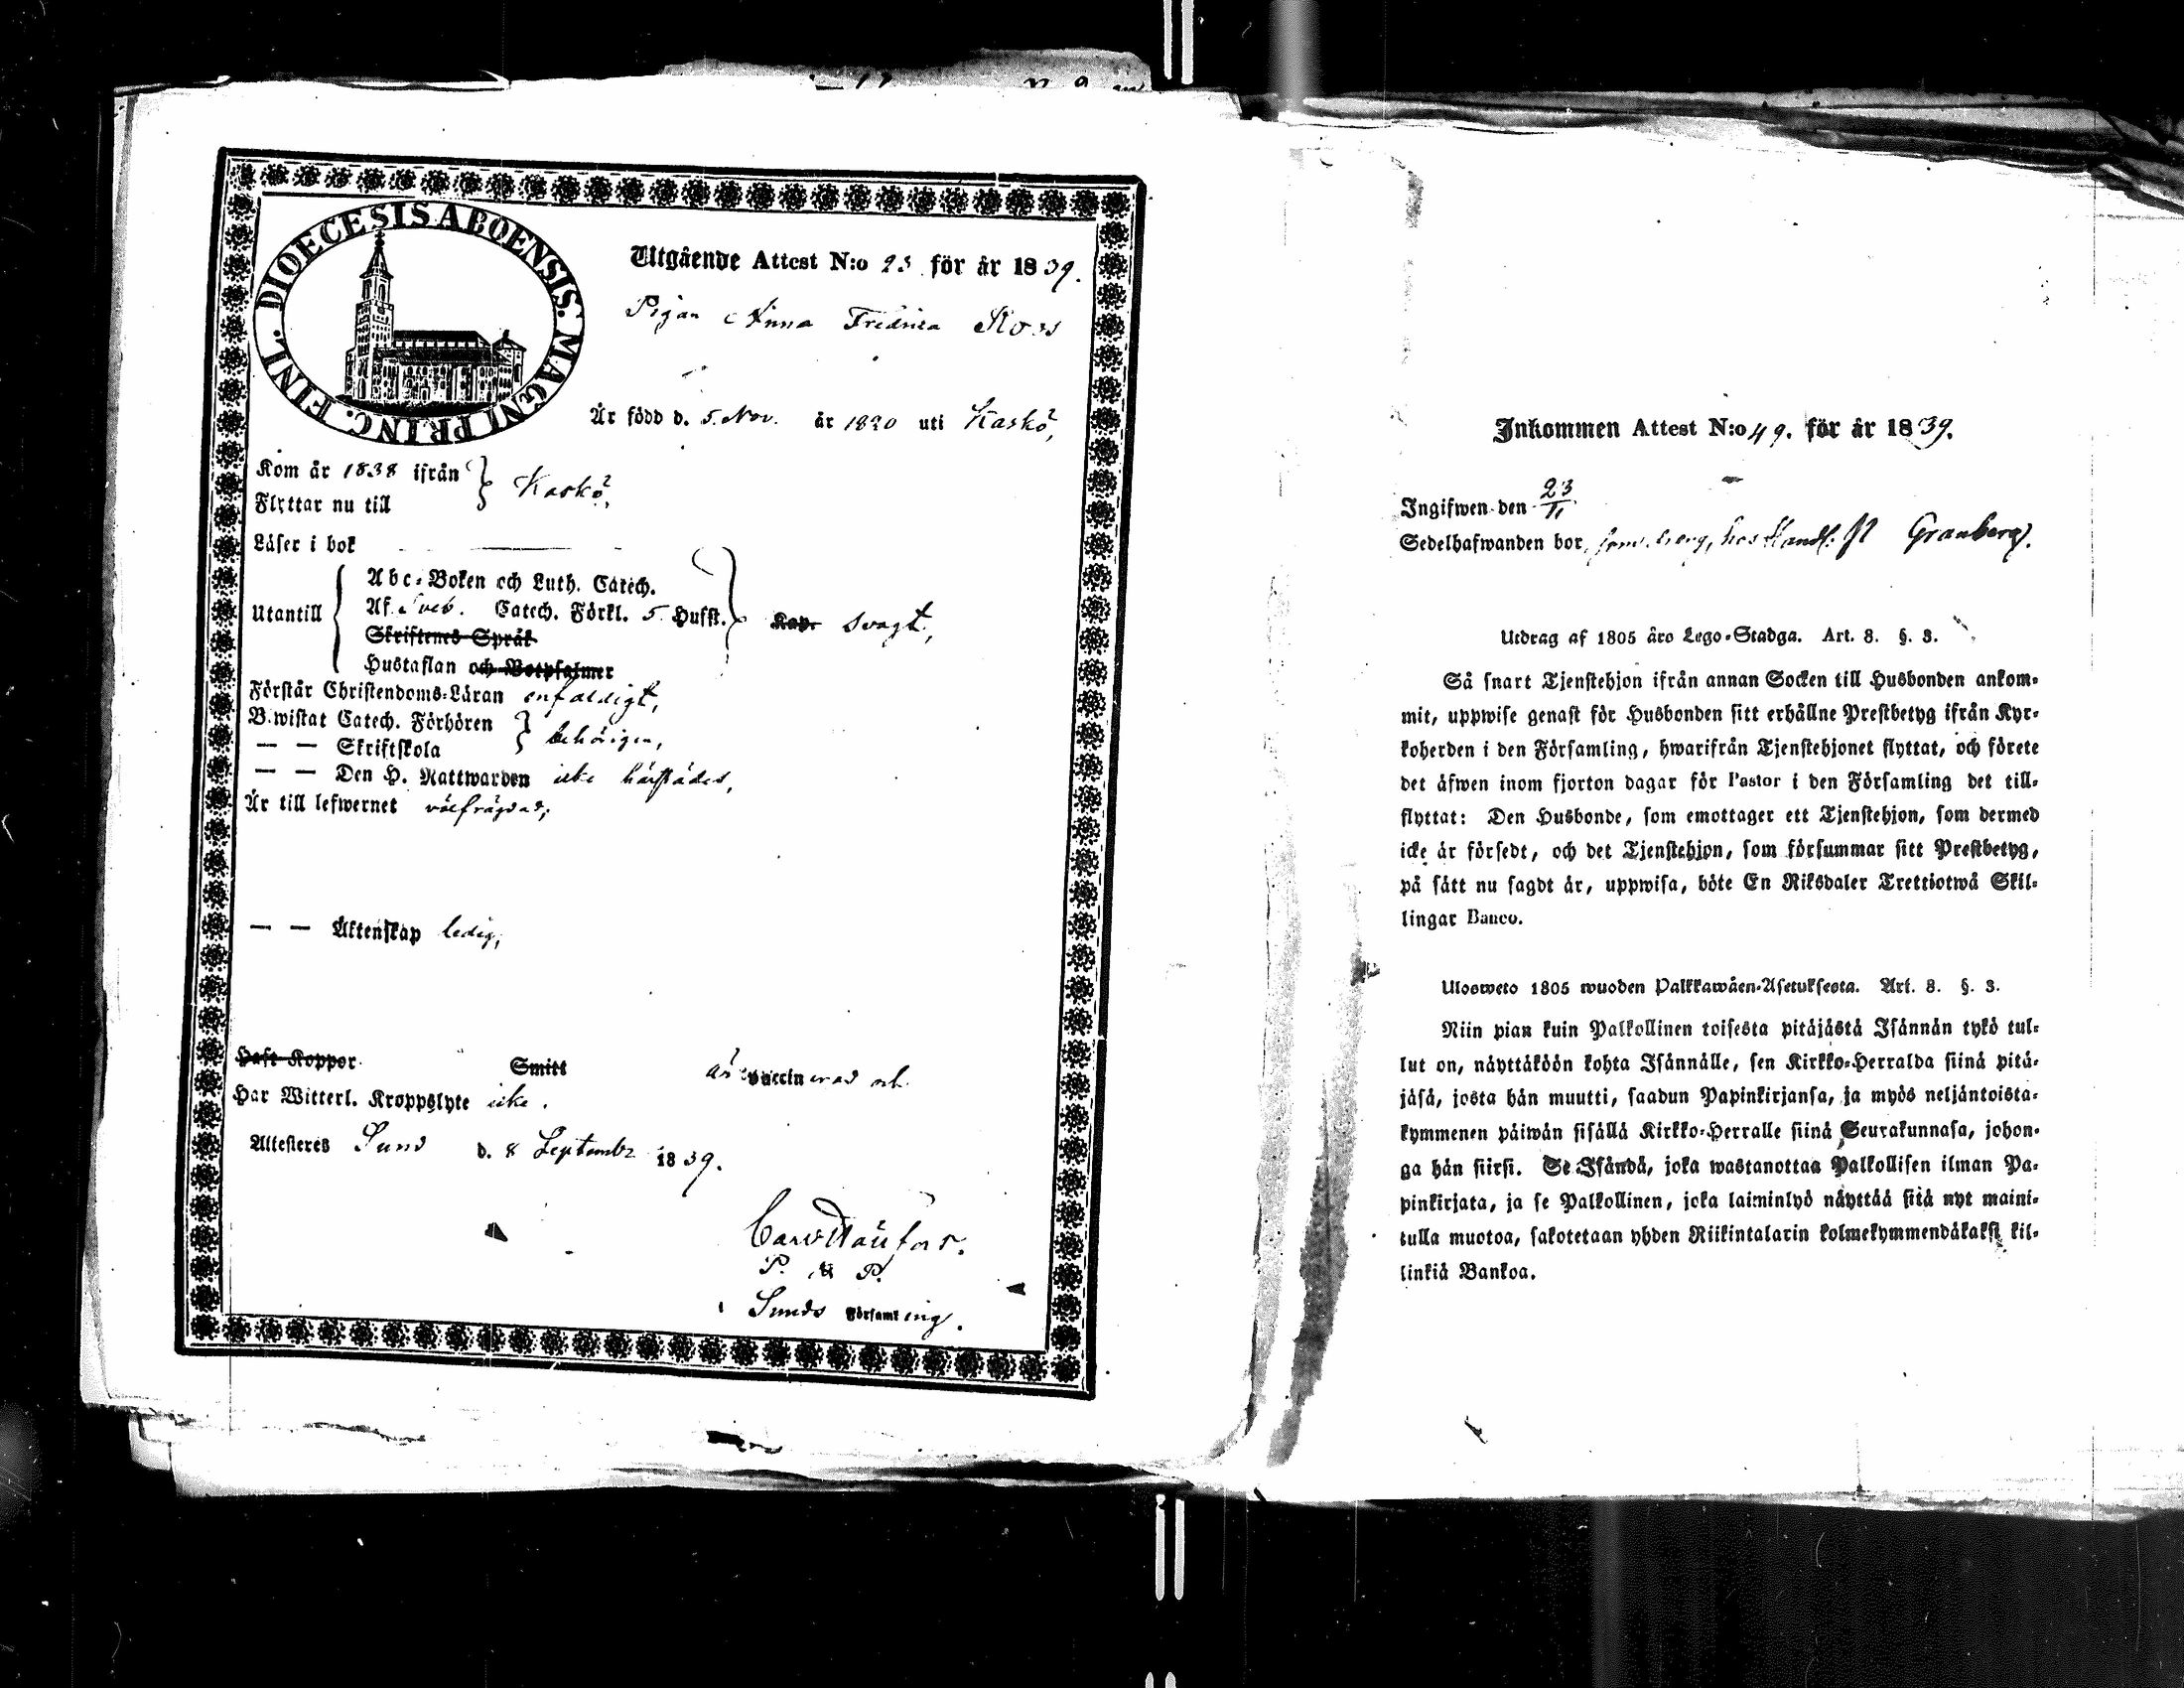 DIOECESIS ABOENSIS. MAGNI PRINC. FINL.
Utgående Attest N:o 23 för år 1839.
Pigan Anna Fredrica Ross
Är född d. 5. Nov. år 1820 uti Kaskö,
Kom år 1838 ifrån
Flyttar nu till
} Kaskö,
Läser i bok
Utantill
Abc-Boken och Luth. Catech.
Af Sveb. Catech. Förkl. 5 Hufst.
Skriftenes Språk
Hustaflan och Botpsalmer
svagt,
Förstår Christendoms-Läran enfaldigt,
B.wistat Catech. Förhören
— — Skriftskola
} behörigen,
— — Den H. Nattwarden icke härstädes,
Är till lefwernet välfrägdad,
— — Äktenskap ledig,
Haft Koppor Smitt är vaccinerad och
Har Witterl. Kroppslyte icke.
Attesteres Sund d. 8 September 1839.
P. P.
Sunds Församling.
Inkommen Attest N:o 49. för år 1839.
Ingifwen den 23/11
Sedelhafwanden bor, hos Handl: Granberg.
Utdrag af 1805 års Lego-Stadga. Art. 8. §. 3.
Så snart Tjenstehjon ifrån annan Socken till Husbonden ankom-
mit, uppwise genast för Husbonden sitt erhållne Prestbetyg ifrån Kyr-
koherden i den Församling, hwarifrån Tjenstehjonet flyttat, och förete
det äfwen inom fjorton dagar för Pastor i den Församling det till-
flyttat: Den Husbonde, som emottager ett Tjenstehjon, som dermed
icke är försedt, och det Tjenstehjon, som försummar sitt Prestbetyg,
på sätt nu sagdt är, uppwisa, böte En Riksdaler Trettiotwå Skil-
lingar Banco.
Ulosweto 1805 wuoden Palkkawäen-Asetuksesta. Art. 8. §. 3.
Niin pian kuin Palkollinen toisesta pitäjästä Isännän tykö tul-
lut on, näyttäköön kohta Isännälle, sen Kirkko-Herralda siinä pitä-
jäsä, josta hän muutti, saadun Papinkirjansa, ja myös neljäntoista-
kymmenen päiwän sisällä Kirkko-Herralle siinä Seurakunnasa, johon-
ga hän siirsi. Se Isändä, joka wastanottaa Palkollisen ilman Pa-
pinkirjata, ja se Palkollinen, joka laiminlyö näyttää sitä nyt maini-
tulla muotoa, sakotetaan yhden Riikintalarin kolmekymmendäkaksi kil-
linkiä Bankoa.